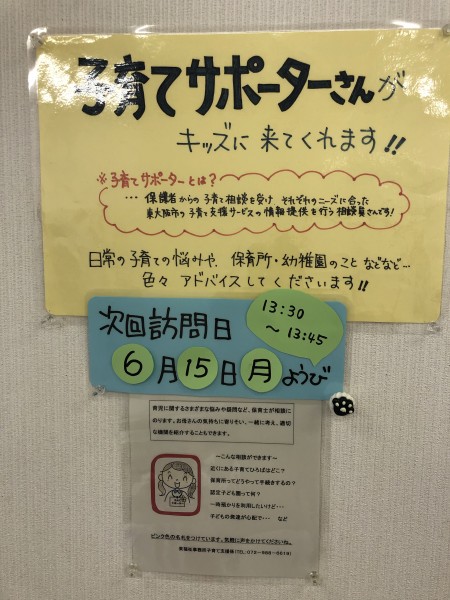 子育てサポーターさんが
キッズに来てくれます!!
※子育てサポーターとは?
… 保護者からの子育て相談を受け それぞれのニーズに合った
東大阪市の子育て支援サービスの情報提供を行う相談員さんです!
日常の子育ての悩みや、保育所・幼稚園のことなどなど…
色々アドバイスしてくださいます!!
次回訪問日
13:30
~13:45
6月15日月ようび
育児に関するさまざまな悩みや疑問など、保育士が相談に
のります。お母さんの気持ちに寄りそい、一緒に考え、適切
な機関を紹介することもできます。
~こんな相談ができます~
近くにある子育てひろばはどこ?
保育所ってどうやって手続きするの?
認定子ども園って何?
一時預かりを利用したいけど…
子どもの発達が心配で… など
ピンク色の名札をつけています。気軽に声をかけてくださいね。